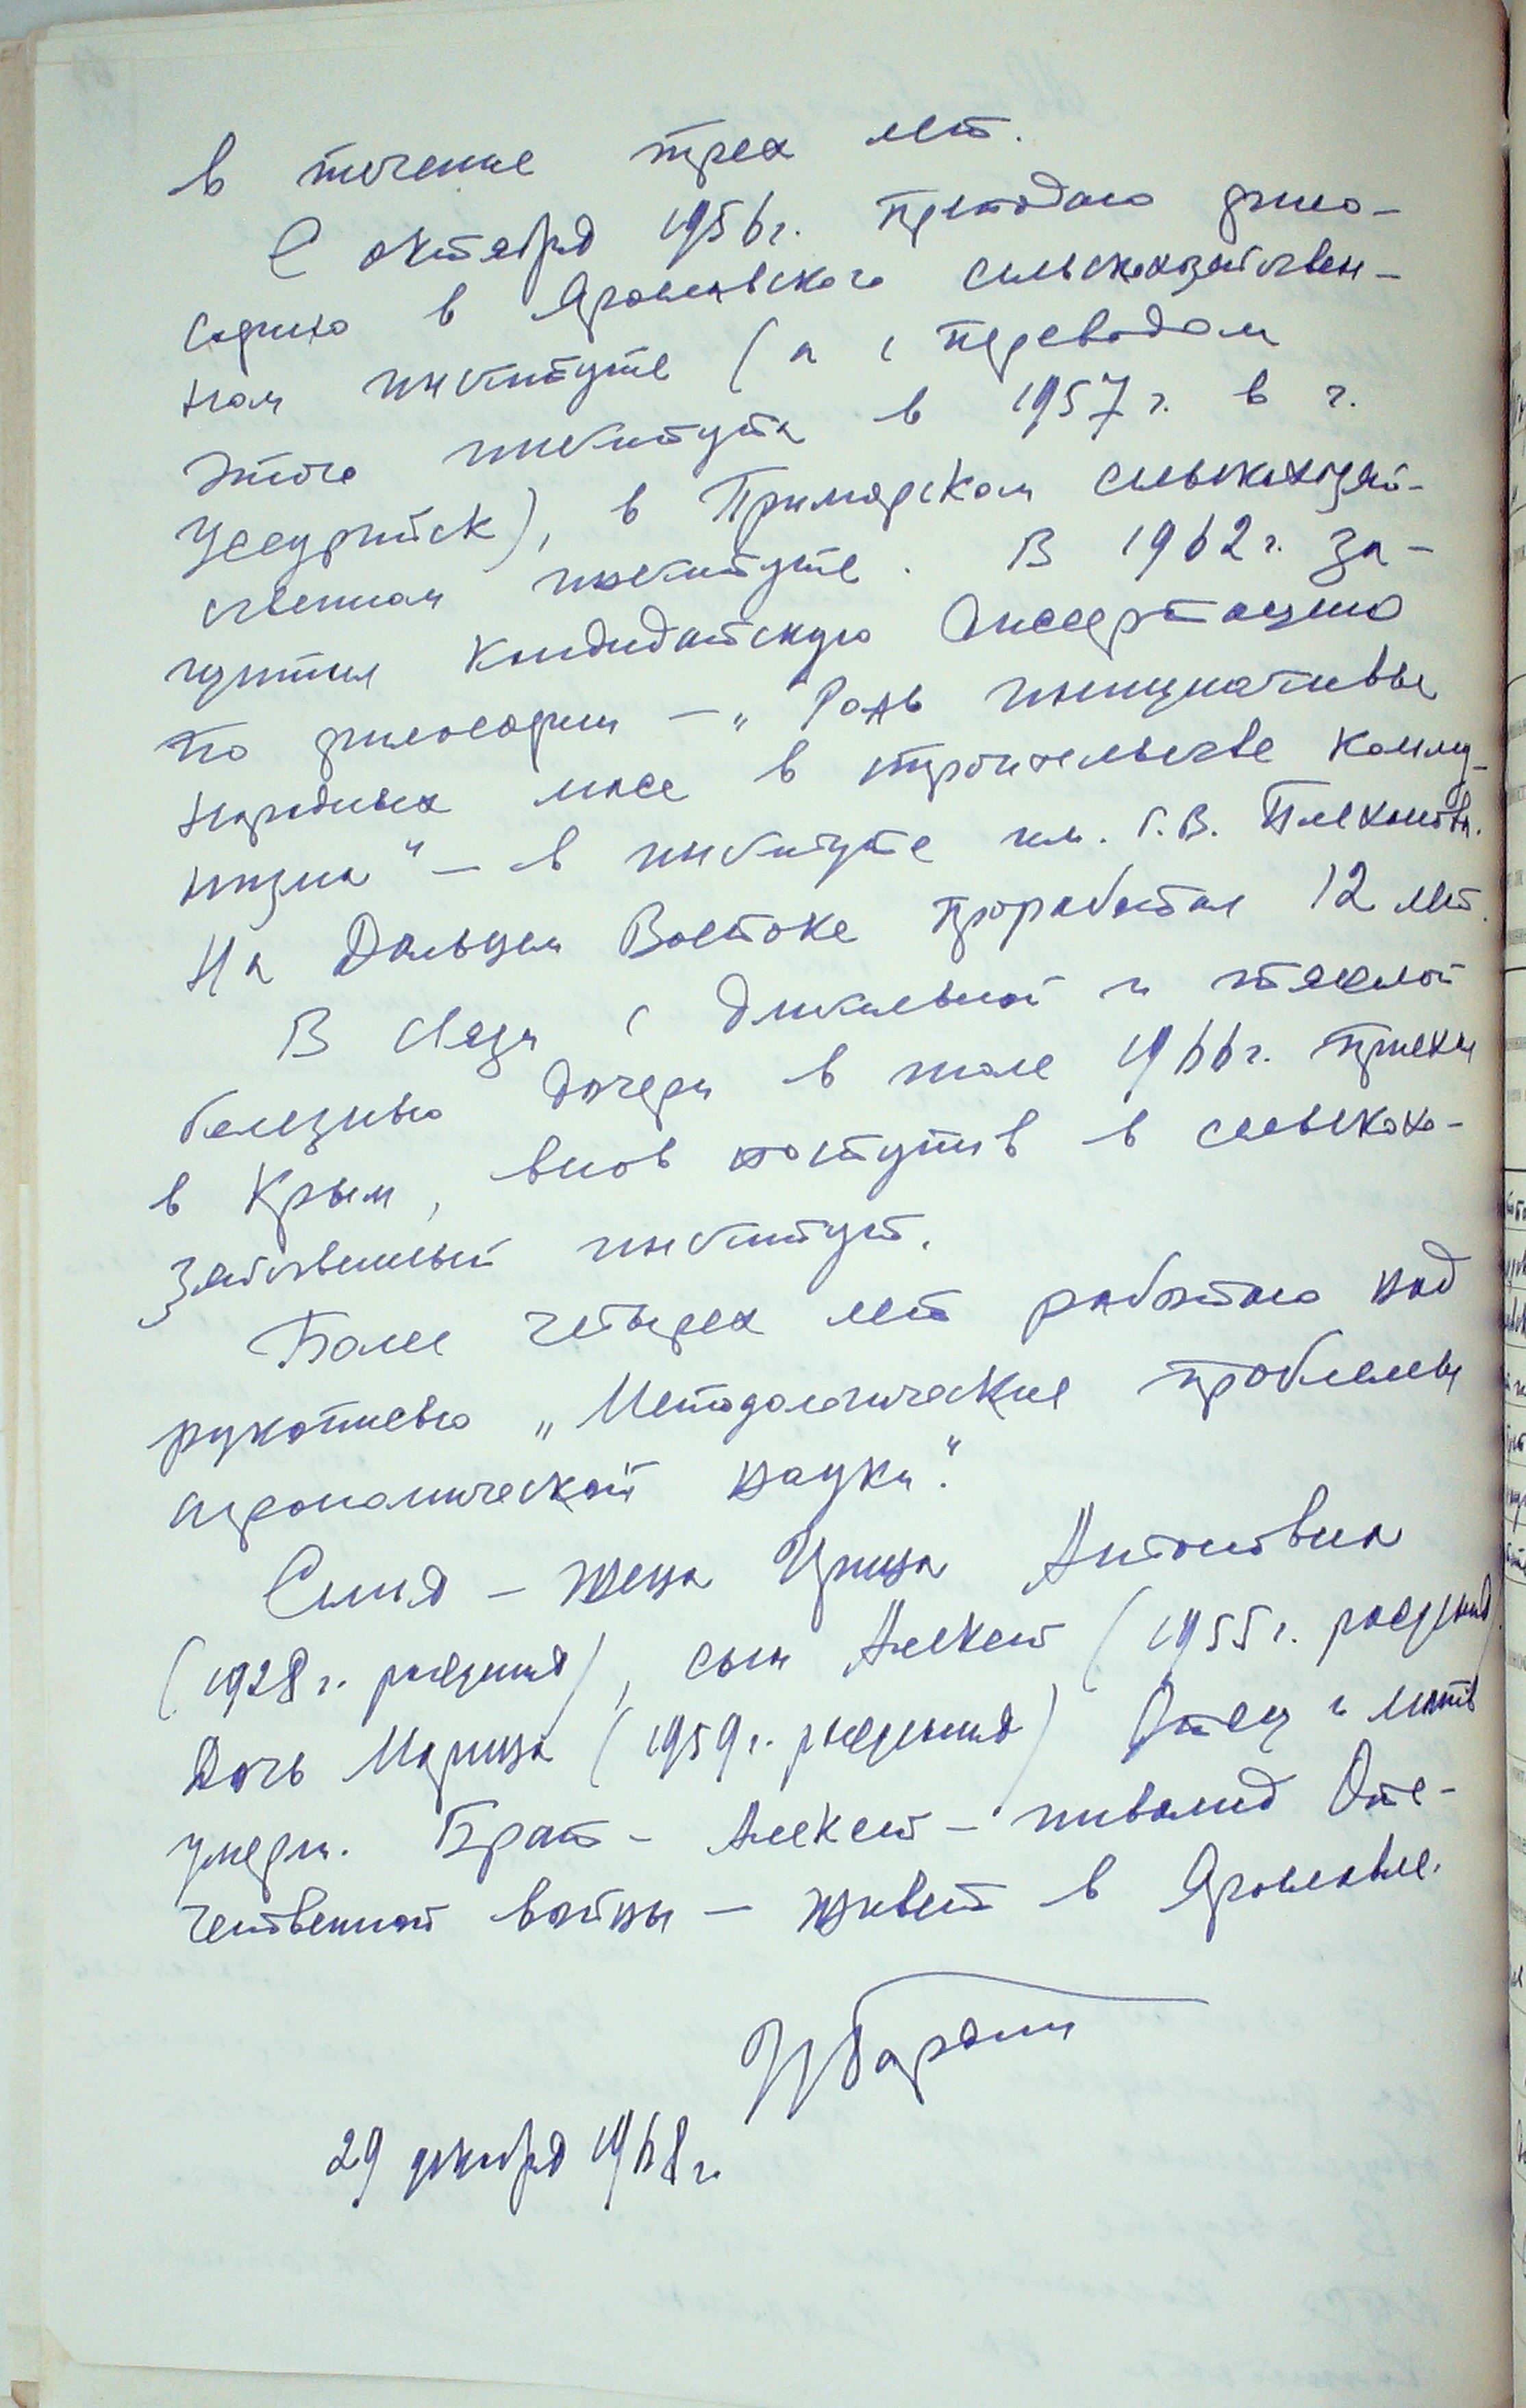 в течение трех лет.
С октября 1956 г. преподаю фило-
софию в Ярославского сельскохозяйствен-
ном институте (а с переводом
этого института в 1957 г. в г.
Уссурийск), в Приморском сельскохозяй-
ственном институте. В 1962 г. за-
щитил кандидатскую диссертацию
по философии – „Роль инициативы
народных масс в строительстве комму-
низма" – в институте им. Г.В. Плеханова.
На Дальнем Востоке проработал 12 лет.
В связи с длительной и тяжелой
болезнью дочери в июле 1966 г. приехал
в Крым, вновь поступив в сельскохо-
зяйственный институт.
Более четырех лет работаю над
рукописью „Методологические проблемы
агрономической науки".
Семья – жена Ирина Антоновна
(1928 г. рождения), сын Алексей (1955 г. рождения)
Дочь Марина (1959 г. рождения) Отец и мать
умерли. Брат – Алексей – инвалид Оте-
чественной войны – живет в Ярославле.
29 декабря 1968 г.